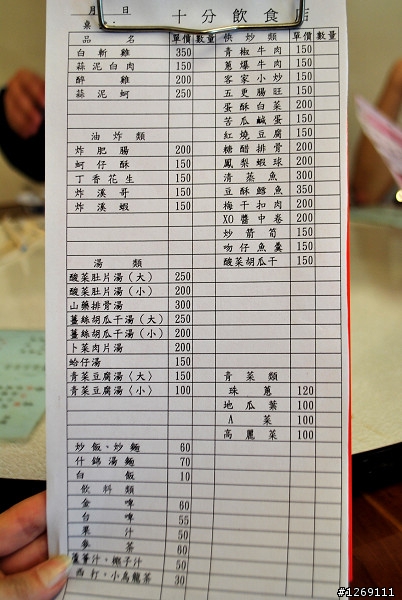 月 日
十分飲食店
桌 :
品 名 單價 數量
白斬雞 350
蒜泥白肉 150
醉雞 200
蒜泥蚵 250
油炸類
炸肥腸 200
蚵仔酥 150
丁香花生 150
炸溪哥 150
炸溪蝦 150
湯類
酸菜肚片湯(大) 250
酸菜肚片湯(小) 200
山藥排骨湯 300
薑絲胡瓜干湯(大) 250
薑絲胡瓜干湯(小) 200
卜菜肉片湯 200
蛤仔湯 150
青菜豆腐湯(大) 150
青菜豆腐湯(小) 100
炒飯、炒麵 60
什錦湯麵 70
白飯 10
飲料類
金啤 60
台啤 55
果汁 50
麥茶 60
蘆筍汁、椰子汁
西打、小烏龍茶 30
快炒類 單價 數量
青椒牛肉 150
蔥爆牛肉 150
客家小炒 150
五更腸旺 150
蛋酥白菜 200
苦瓜鹹蛋 150
紅燒豆腐 150
糖醋排骨 200
鳳梨蝦球 200
清蒸魚 300
豆酥鱈魚 350
梅干扣肉 200
XO醬中卷 200
炒箭筍 150
吻仔魚羹 150
酸菜胡瓜干 150
青菜類
珠蔥 120
地瓜葉 100
A菜 100
高麗菜 100
#1269111